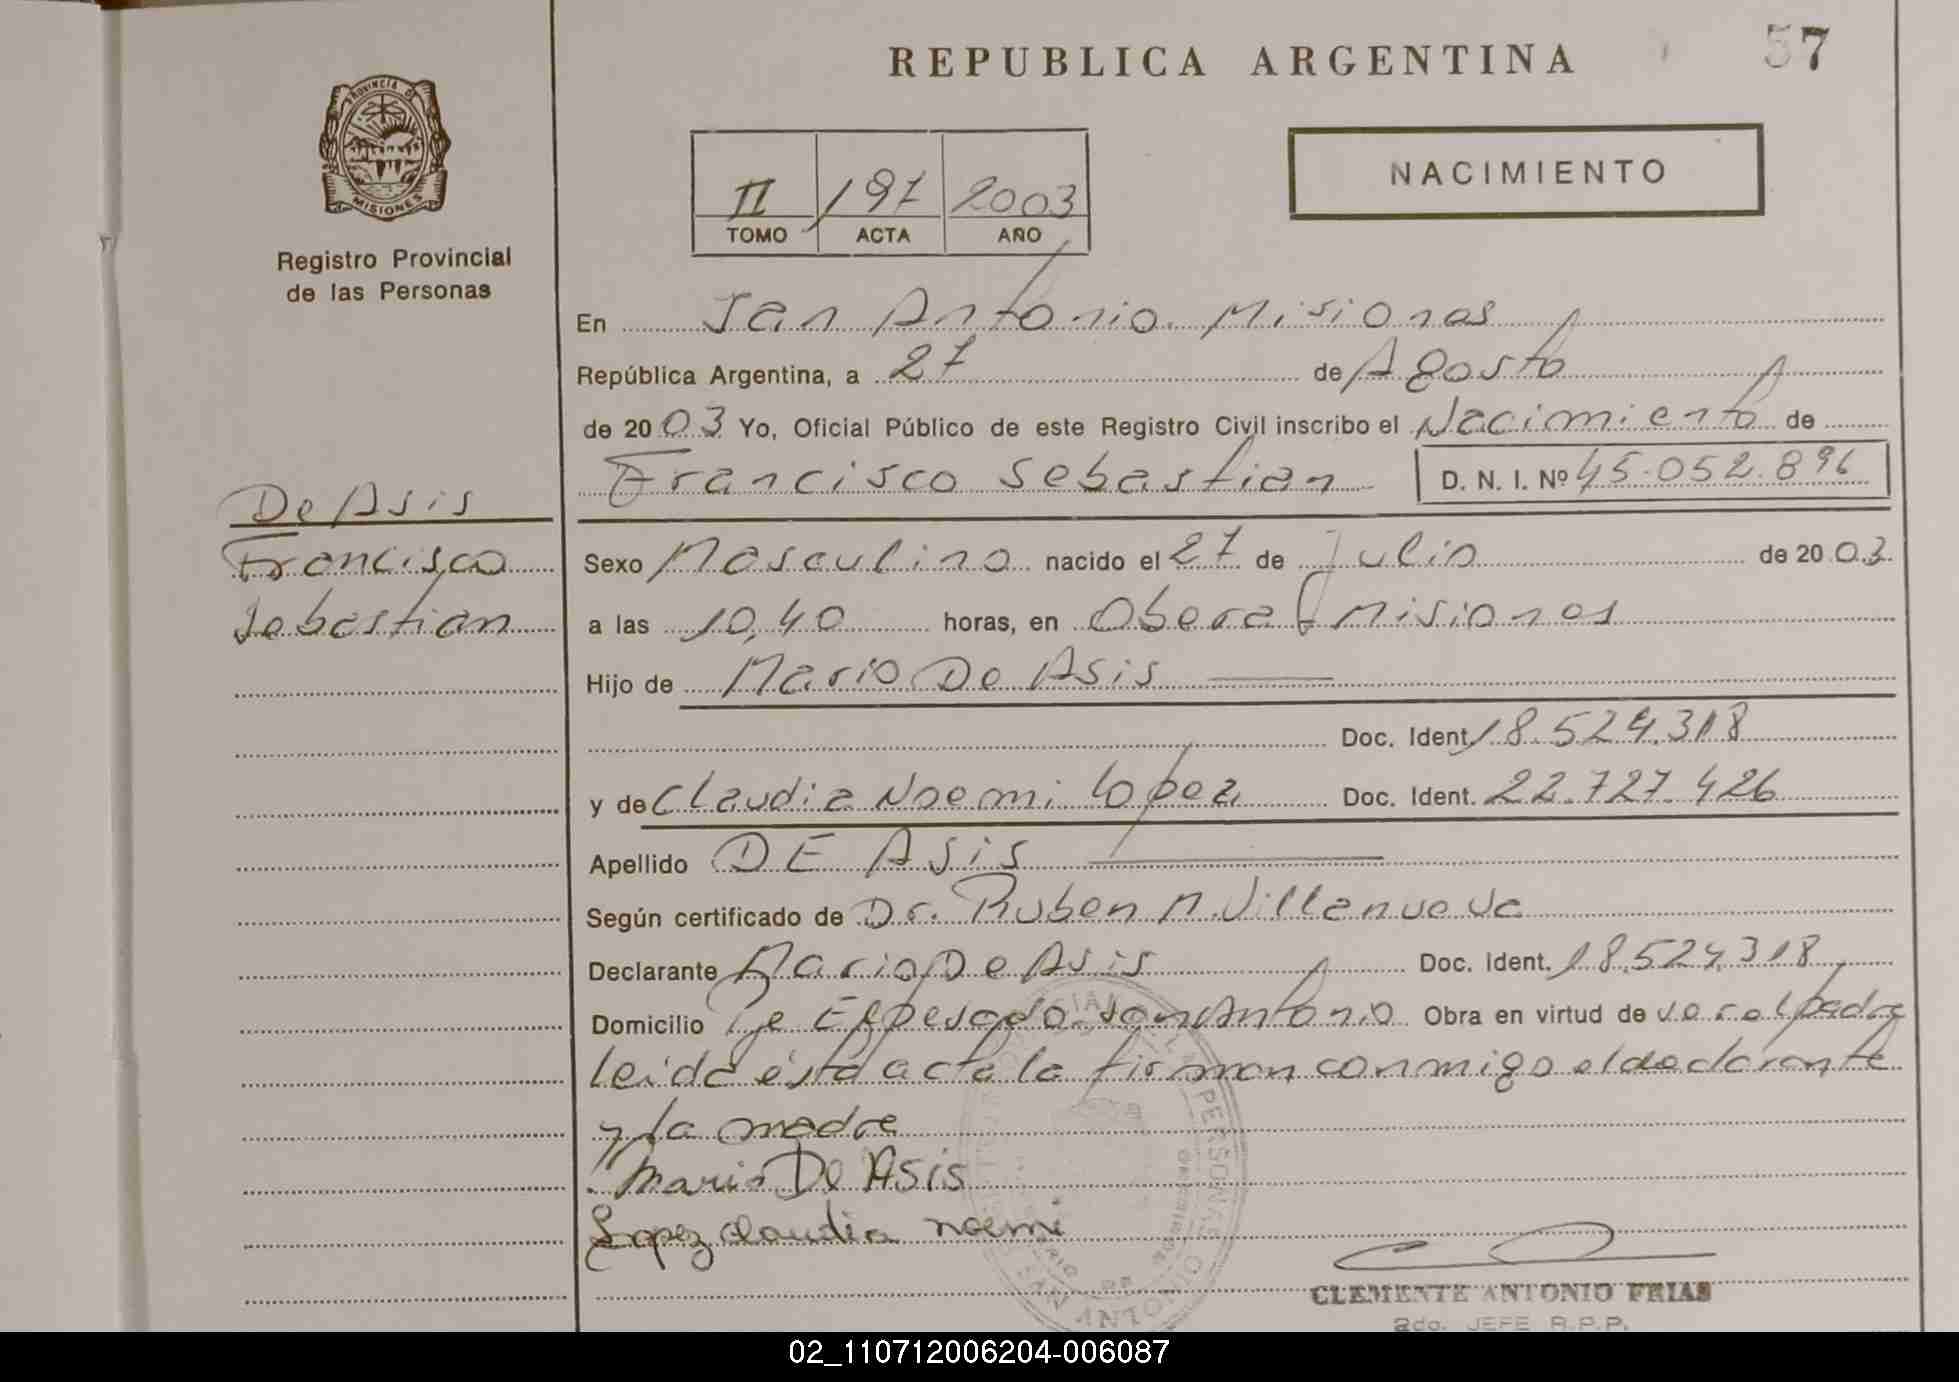 REPUBLICA ARGENTINA
57
PROVINCIA DE
MISIONES
Registro Provincial
de las Personas
II /197 2003
TOMO ACTA AÑO
NACIMIENTO
En San Antonio Misiones
República Argentina, a 27 de Agosto
de 2003 Yo, Oficial Público de este Registro Civil inscribo el Nacimiento de
Francisco Sebastian D. N. I. Nº 45.052.896
De Asis
Francisco
Sebastian
Sexo Masculino nacido el 27 de Julio de 2003
a las 10,40 horas, en Obera Misiones
Hijo de Mario De Asis
Doc. Ident. 18.524.318
y de Claudia Noemi Lopez Doc. Ident. 22.727.426
Apellido DE ASis
Según certificado de Dr. Ruben A. Villanueva
Declarante Mario De Asis Doc. Ident. 18.524.318
Domicilio Pje El pesado San Antonio Obra en virtud de ser el padre
leida ésta acta la firman conmigo el declarante
y la madre
Mario De Asis
Lopez claudia noemi
SAN ANTONIO
CLEMENTE ANTONIO FRIAS
2do. JEFE R.P.P.
02_110712006204-006087